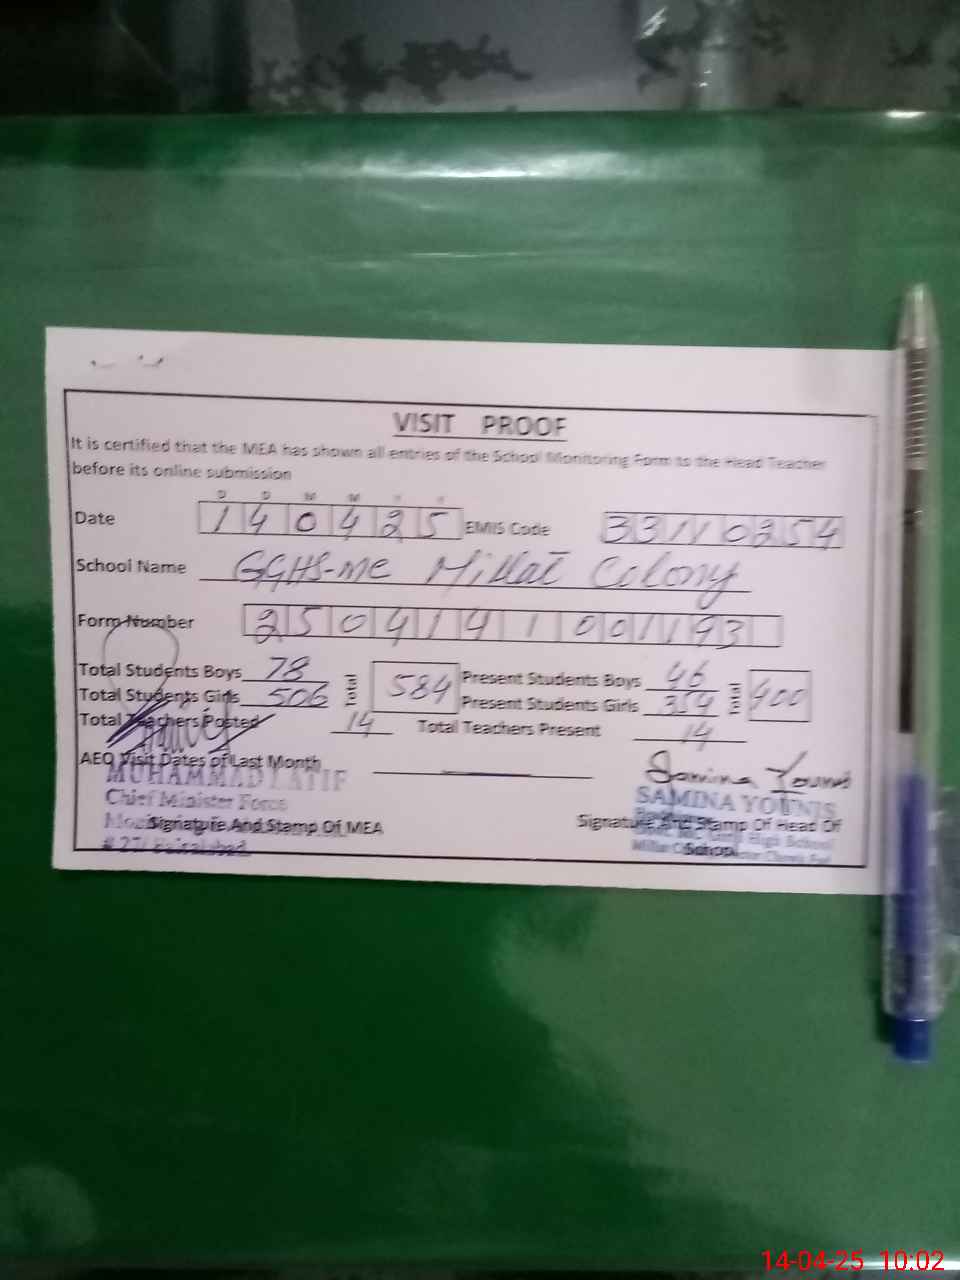 VISIT PROOF
It is certified that the MEA has shown all entries of the School Monitoring Form to the Head Teacher
before its online submission
D D M M Y Y
Date 1 4 0 4 2 5 EMIS Code 33110354
School Name GGHS-MC Millat Colony
Form Number 2504141001193
Total Students Boys 78 Total 584 Present Students Boys 46 Total 400
Total Students Girls 506 Present Students Girls 354
Total Teachers Posted 14 Total Teachers Present 14
AEO Visit Dates of Last Month
Samina Younis
MUHAMMAD LATIF
SAMINA YOUNIS
Chief Minister Force
Signature And Stamp Of MEA
Signature And Stamp Of Head Of
School
High School
# 27/ Faisalabad
14-04-25 10:02